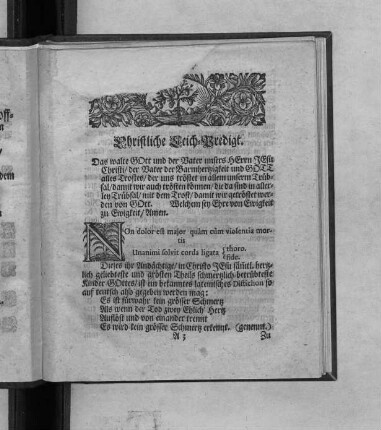 Christliche Leich-Predigt.
Das walte GOtt und der Vater unsers HErrn JEsu
Christi/ der Vater der Barmhertzigkeit und GOTT
alles Trostes/ der uns tröstet in allem unserm Trüb-
sal/ damit wir auch trösten können/ die da sind in aller-
ley Trübsal/ mit dem Trost/ damit wir getröstet wer-
den von GOtt. Welchem sey Ehre von Ewigkeit
zu Ewigkeit/ Amen.
NOn dolor est major quàm cùm violentia mor-
tis
Unanimi solvit corda ligata thoro.
fide.
Dieses ihr Andächtige/ in Christo JEsu hertz-
lich geliebteste und größten Theils schmertzlich-betrübteste
Kinder GOttes/ ist ein bekanntes lateinisches Distichon so
auf teutsch also gegeben werden mag:
Es ist fürwahr kein grösser Schmertz
Als wenn der Tod zwey Ehlich Hertz
Auflöst und von einander trennt
Es wird kein grösser Schmertz erkennt. (genennt.)
A 3 Zu